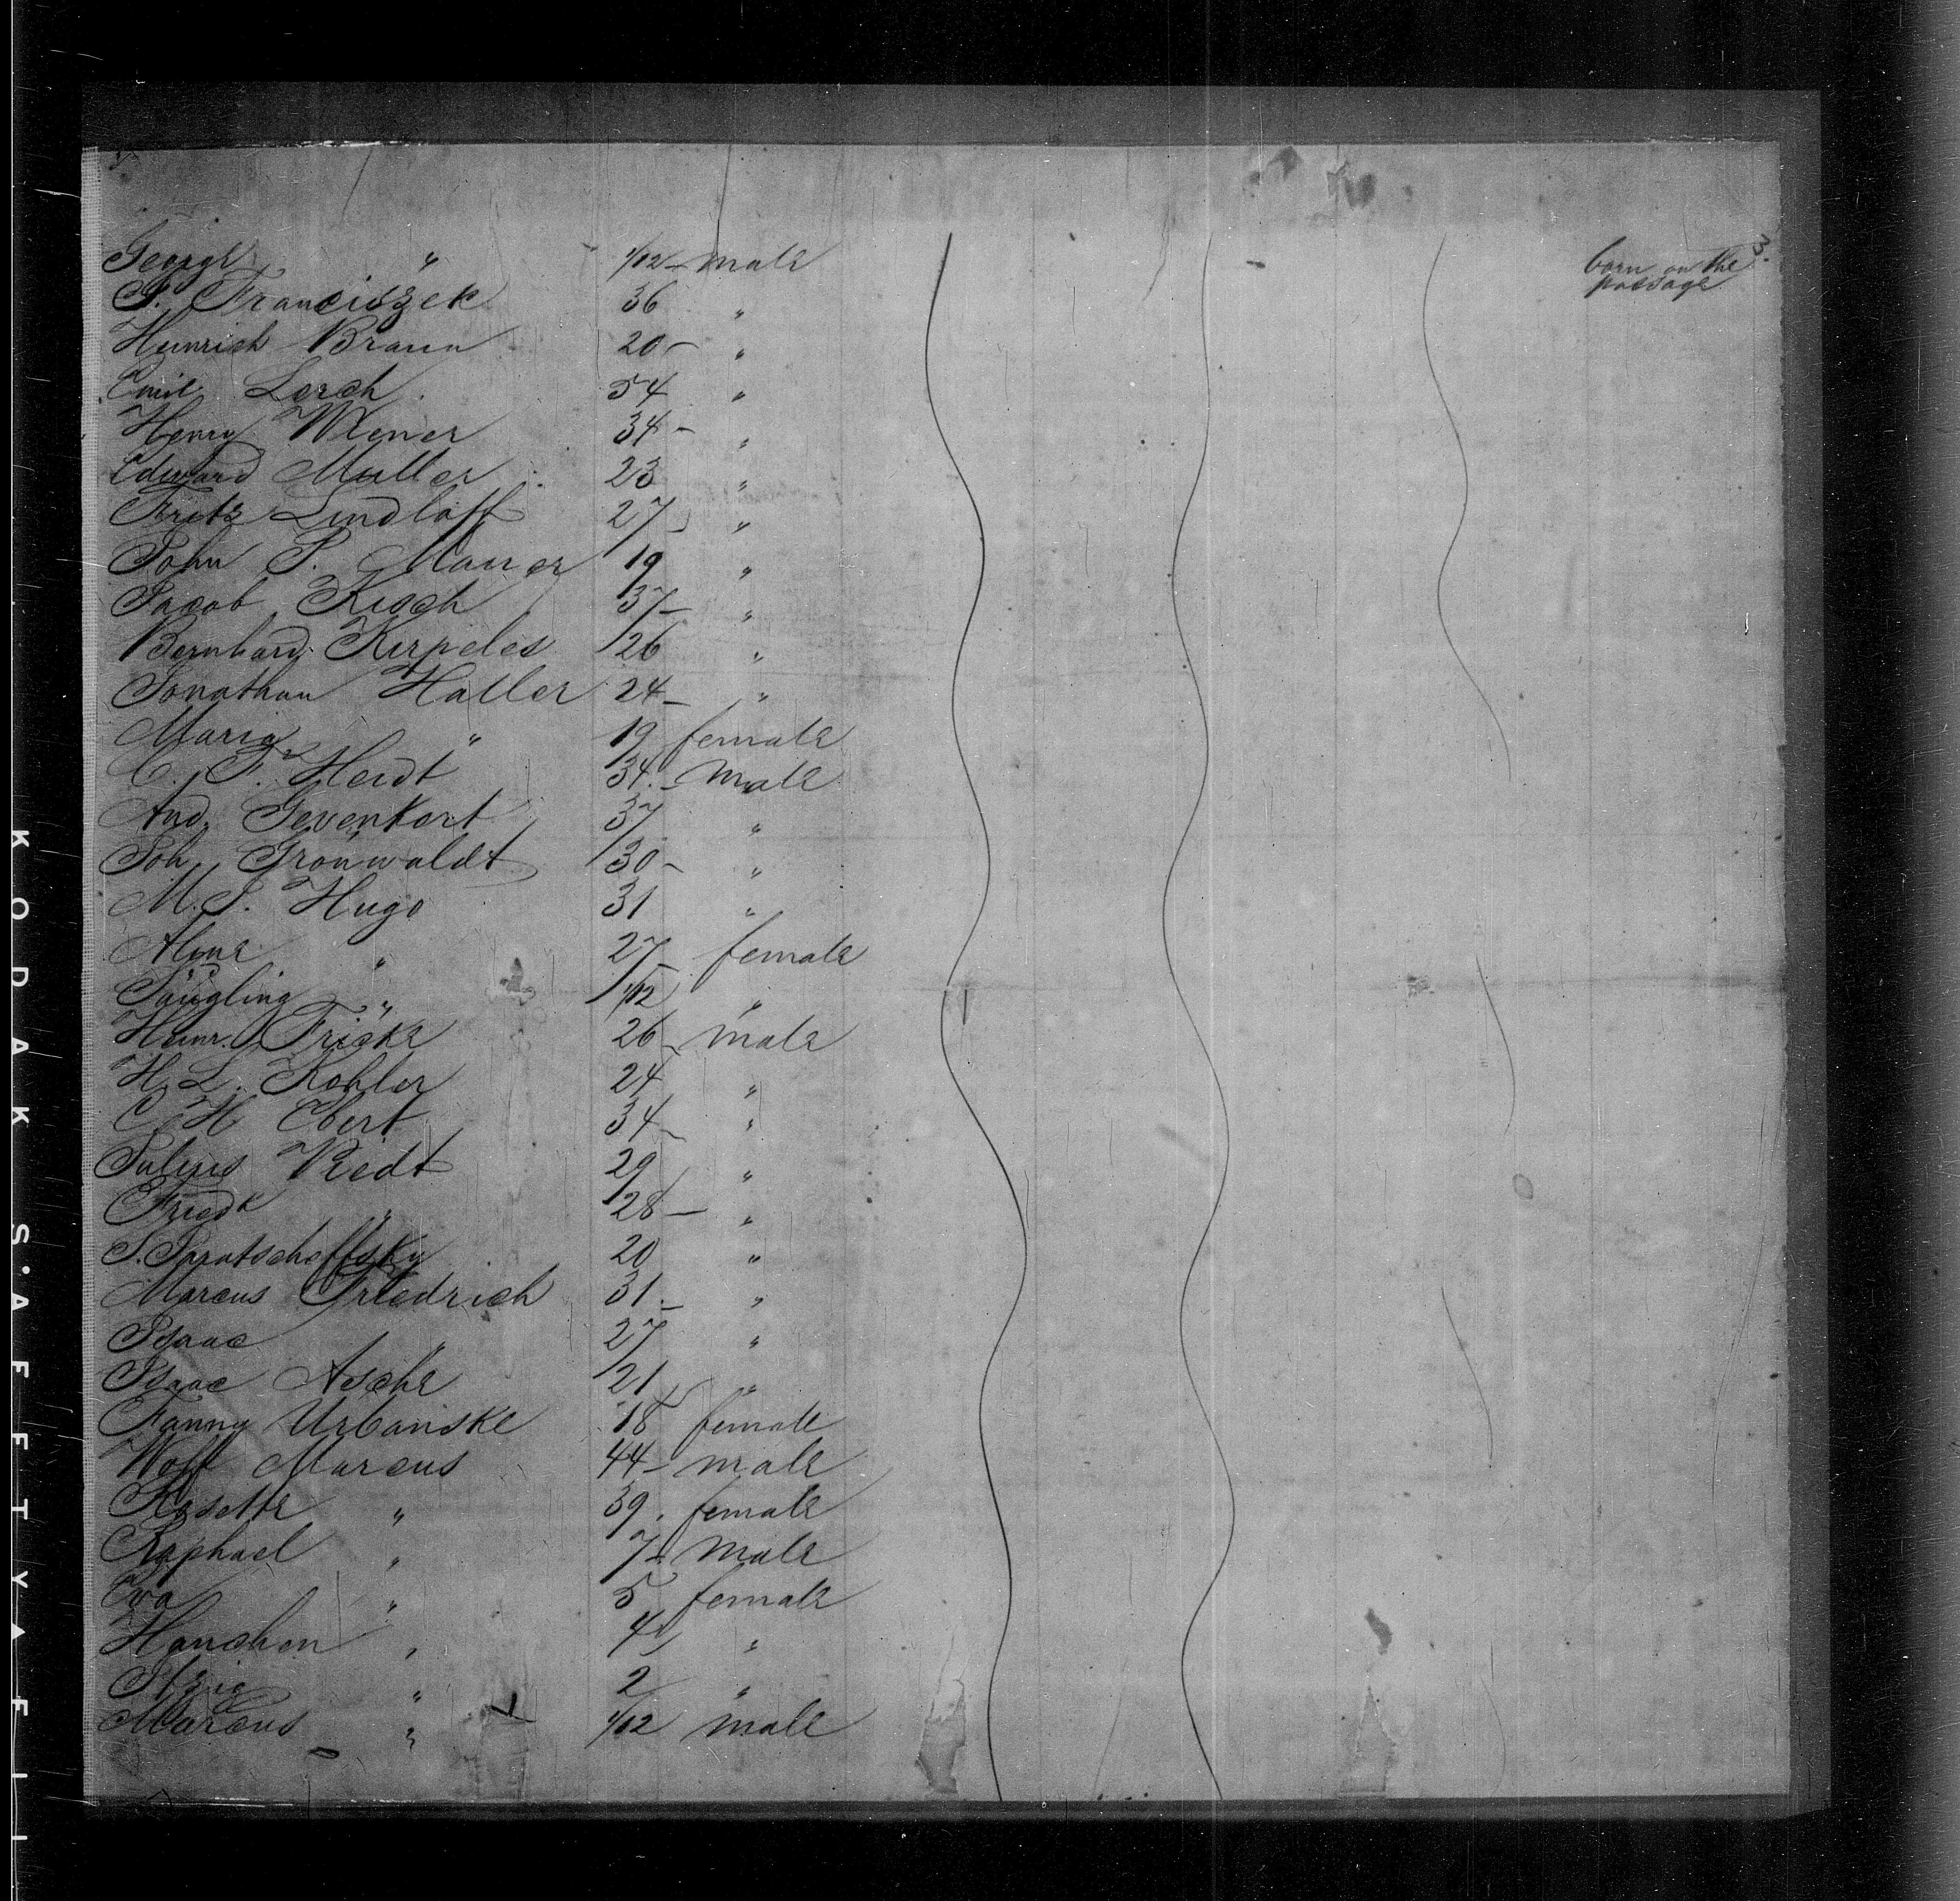 3.
George " 1/12 - male born on the
passage
P. Franciszek 36 "
Heinrich Braun 20 - "
Emil Lerch 54 "
Henry Wiener 34 - "
Edward Muller 23 "
Fritz Lindloff 27 "
John P. Maurer 19 "
Jacob Kisch 37 - "
Bernhard Kirpeles 26 "
Jonathan Haller 24 - "
Maria " 19 female
C. F. Heidt 34 - male
And. Gevenkort 37 "
Joh. Gronwaldt 30 - "
M. S. Hugo 31 "
Aline " 27 - female
Säugling " 1/12 "
Heinr. Fricke 26 - male
H. L. Kohler 24 "
C. H. Ebert 34 - "
Julius Riedt 29 "
Friedk " 28 - "
20 "
Marcus Friedrich 31 - "
Isaac " 27 "
Isaac Asche 21 "
Fanny Urbanske 18 female
Wolf Marcus 44 - male
Rosette " 39 . female
Raphael " 7 - male
Eva " 5 female
Hanchen " 4 "
Itzig " 2 "
Marcus " 1/12 male
KODAK S.AFETY